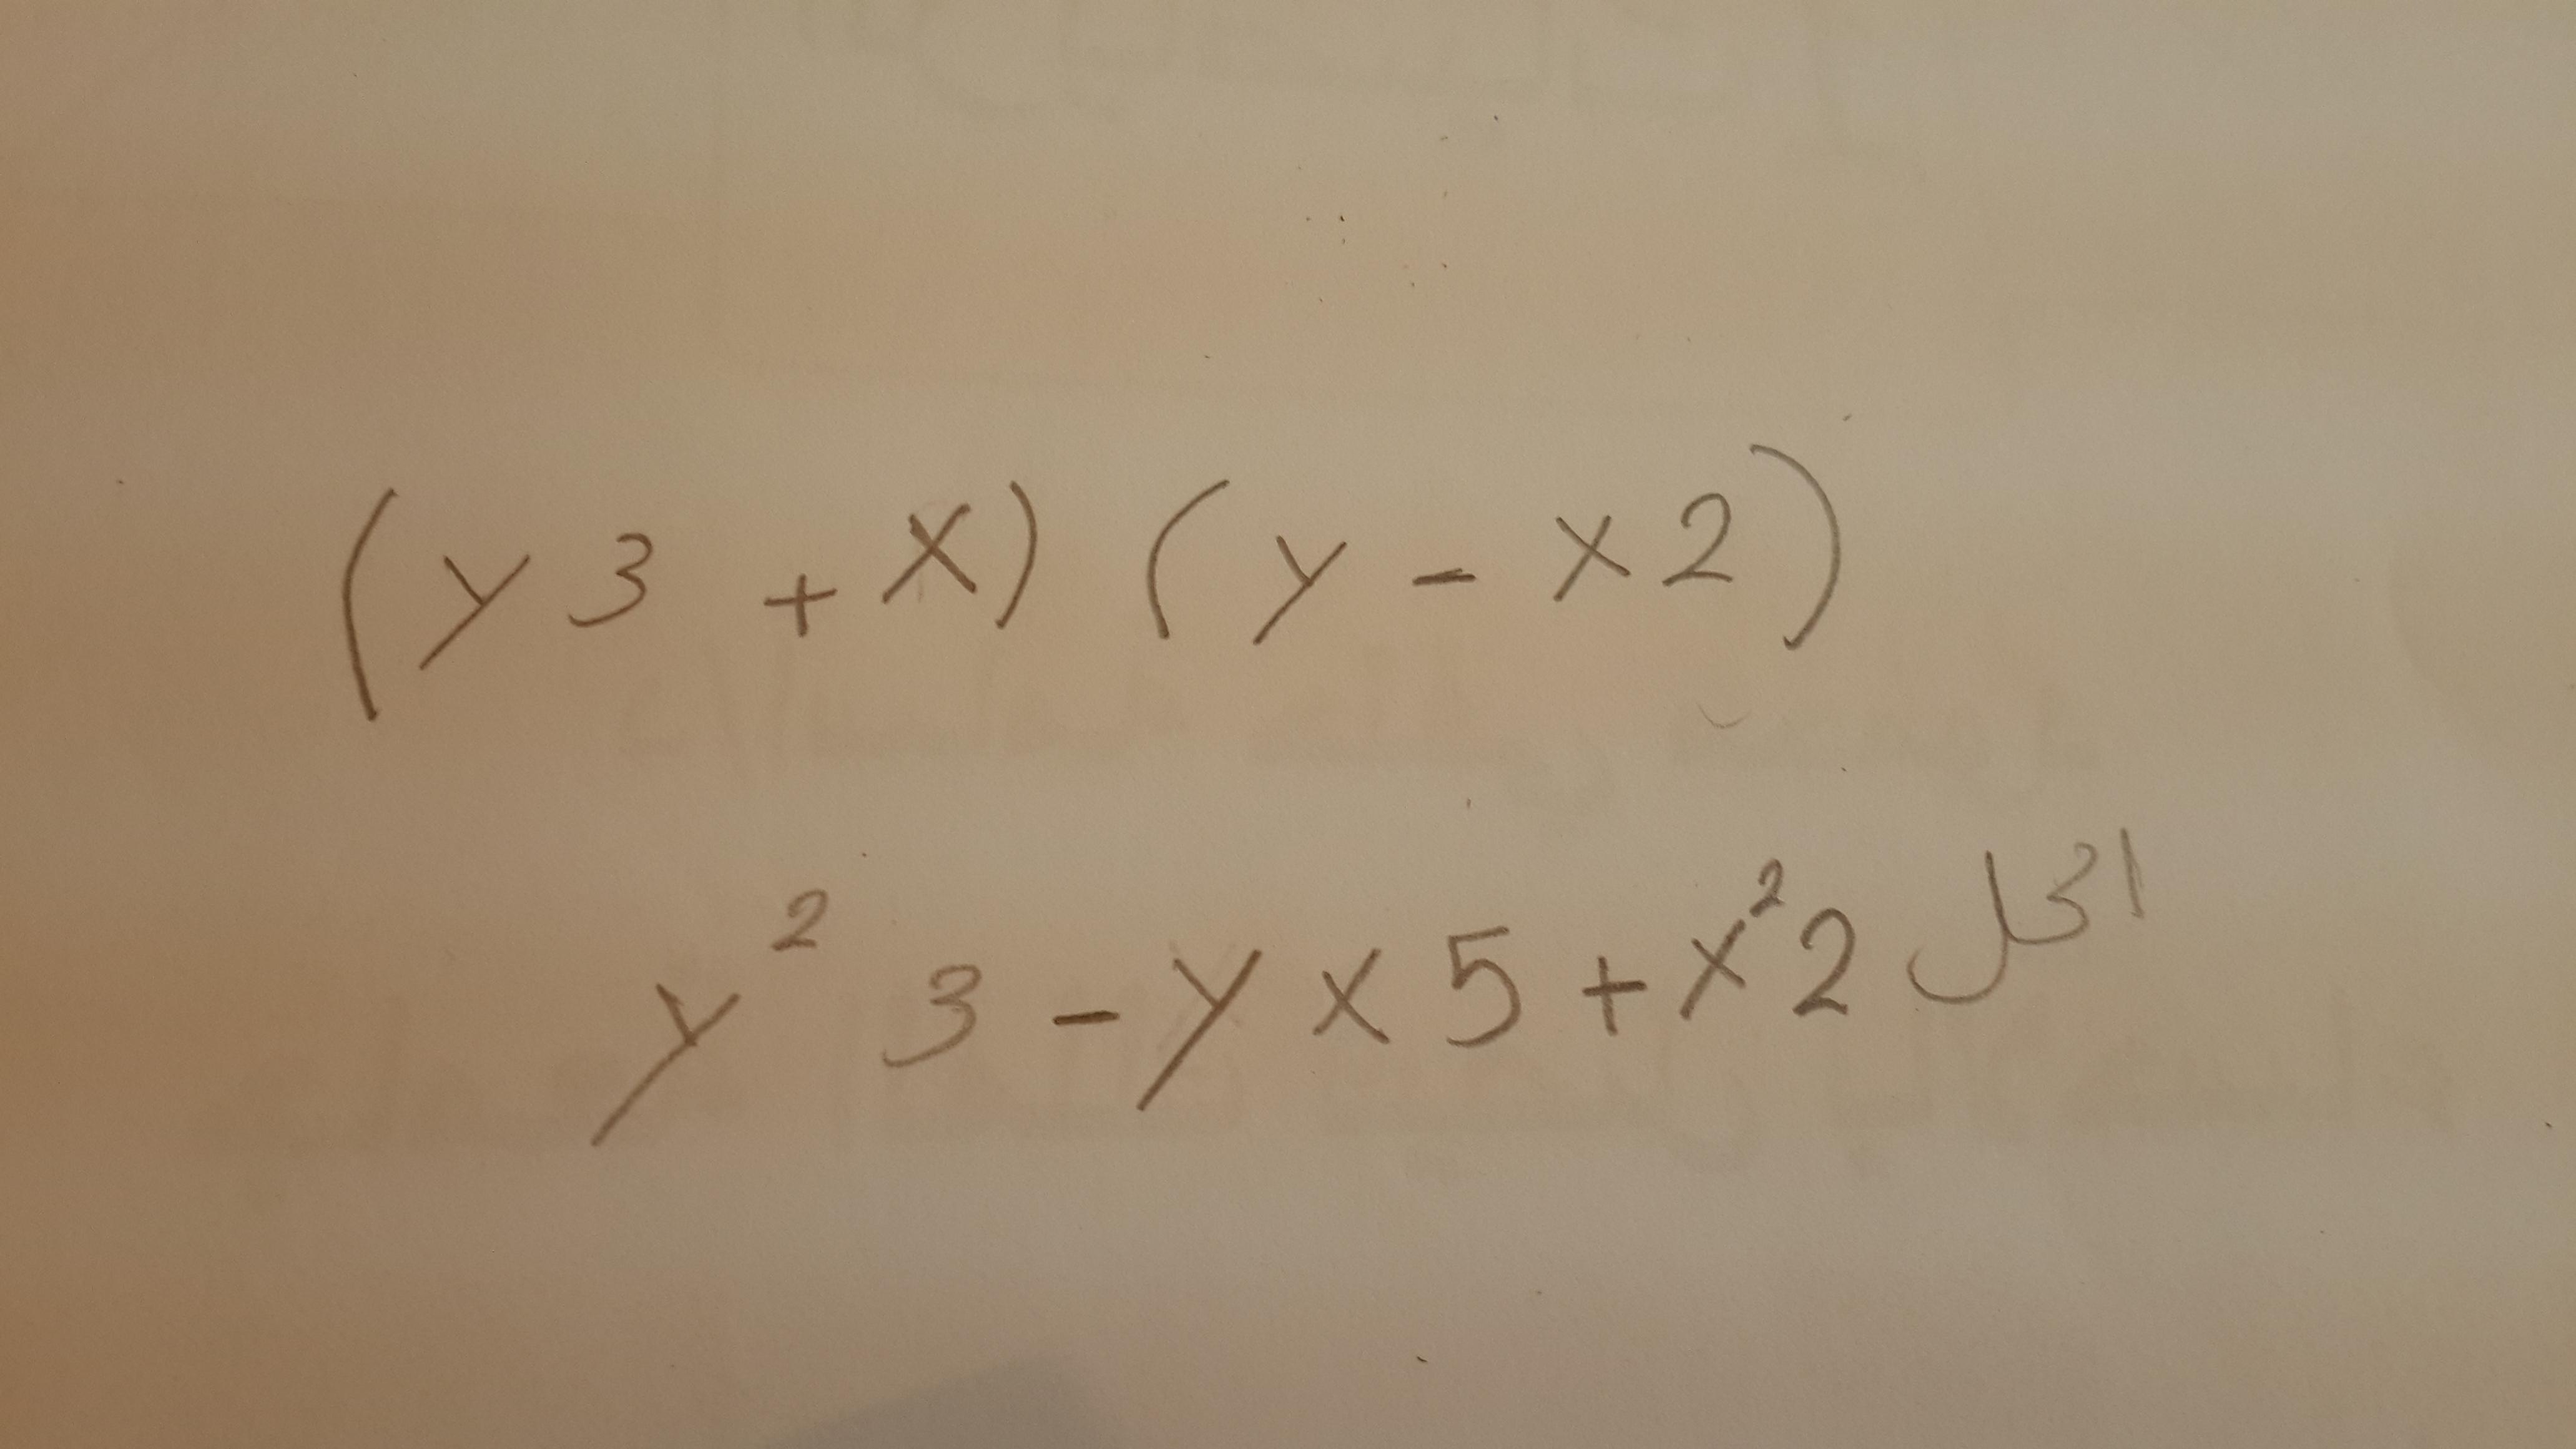 (y3 + x) (y - x2)
y² 3 - y x 5 + x² 2 الحل